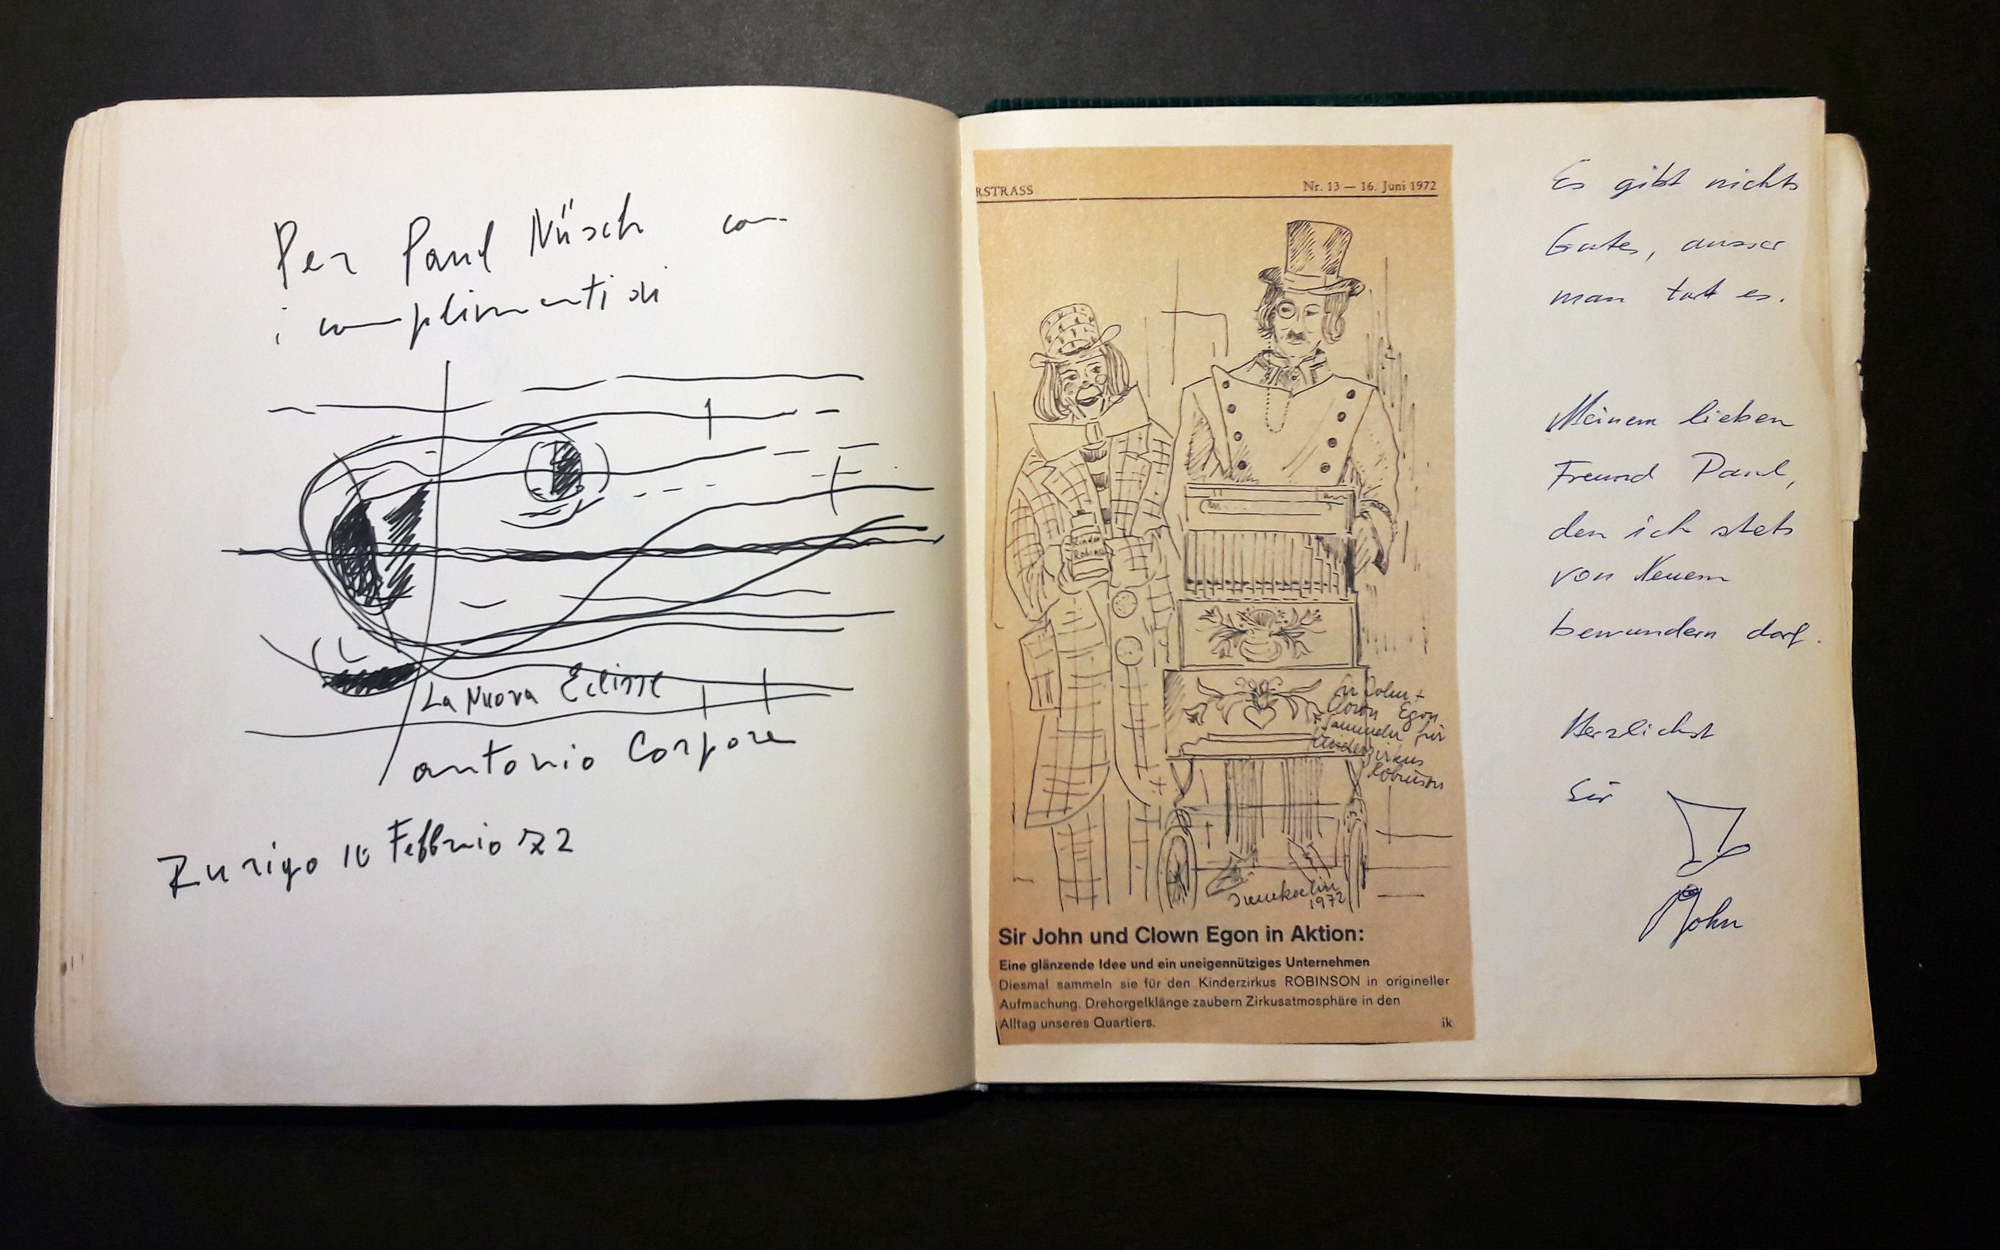 Per Paul Nüsch con
i complimenti di
La Nuova Eclisse
antonio Corpora
Zurigo 16 Febbraio 72
RSTRASS
Nr. 13 — 16. Juni 1972
Kinder
Robins
Sir John +
Clown Egon
sammeln für
Kinderzirkus
Robinson
1972
Sir John und Clown Egon in Aktion:
Eine glänzende Idee und ein uneigennütziges Unternehmen
Diesmal sammeln sie für den Kinderzirkus ROBINSON in origineller
Aufmachung. Drehorgelklänge zaubern Zirkusatmosphäre in den
Alltag unseres Quartiers.
ik
Es gibt nichts
Gutes, ausser
man tut es.
Meinem lieben
Freund Paul,
den ich stets
von Neuem
bewundern darf.
Herzlichst
Sir
John